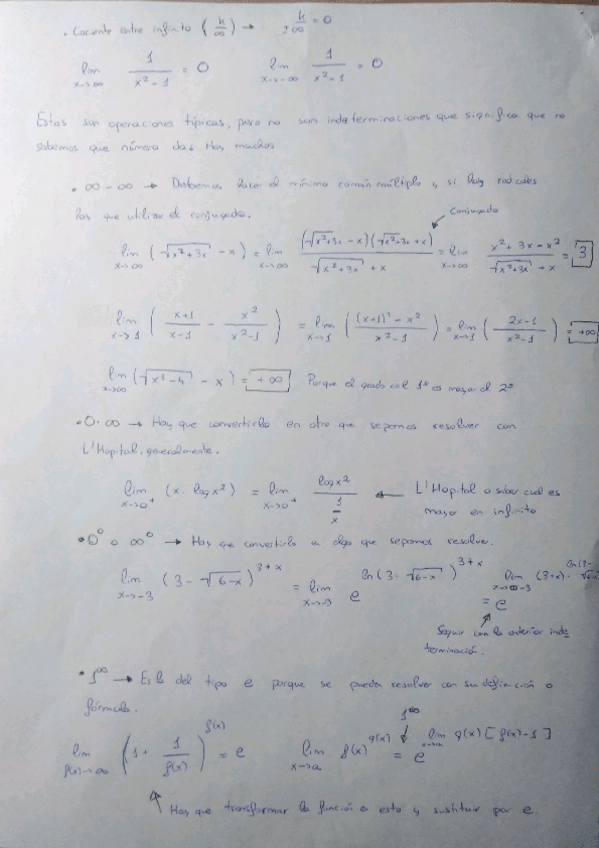 . Cociente entre infinito (k/∞) → k/±∞ = 0
lim x→∞ 1/(x²-1) = 0   lim x→-∞ 1/(x²-1) = 0
Estas son operaciones típicas, pero no son indeterminaciones que significa que no
sabemos que número das Hay muchos
. ∞-∞ → Debemos hacer el mínimo común múltiplo y si hay radicales
hay que utilizar el conjugado.
Conjugado
lim x→∞ (√(x²+3x) - x) = lim x→∞ (√(x²+3x) - x)(√(x²+3x) + x) / (√(x²+3x) + x) = lim x→∞ (x²+3x-x²) / (√(x²+3x) + x) = 3
lim x→1 ( (x+1)/(x-1) - x²/(x²-1) ) = lim x→1 ( ((x+1)²-x²)/(x²-1) ) = lim x→1 ( (2x-1)/(x²-1) ) = +∞
lim x→∞ (√(x³-4) - x) = +∞ Porque el grado del 1º es mayor al 2º
. 0·∞ → Hay que convertirlo en otro que sepamos resolver con
L'Hopital, generalmente.
lim x→0⁺ (x. log x²) = lim x→0⁺ log x² / (1/x) ← L'Hopital o saber cual es
mayor en infinito
. 0⁰ o ∞⁰ → Hay que convertirlo en algo que sepamos resolver.
lim x→-3 (3-√(6-x))^(3+x) = lim x→-3 e^(ln(3-√(6-x))^(3+x)) = e^(lim x→-3 (3+x)·ln(3-√(6-x)))
Seguir con la anterior inde
terminación.
. 1^∞ → Es la del tipo e porque se pueden resolver con su definición o
fórmula.
1^∞
lim f(x)→∞ (1 + 1/f(x))^f(x) = e   lim x→a f(x)^g(x) = e^(lim x→a g(x)[f(x)-1])
Hay que transformar la función a esto y sustituir por e.